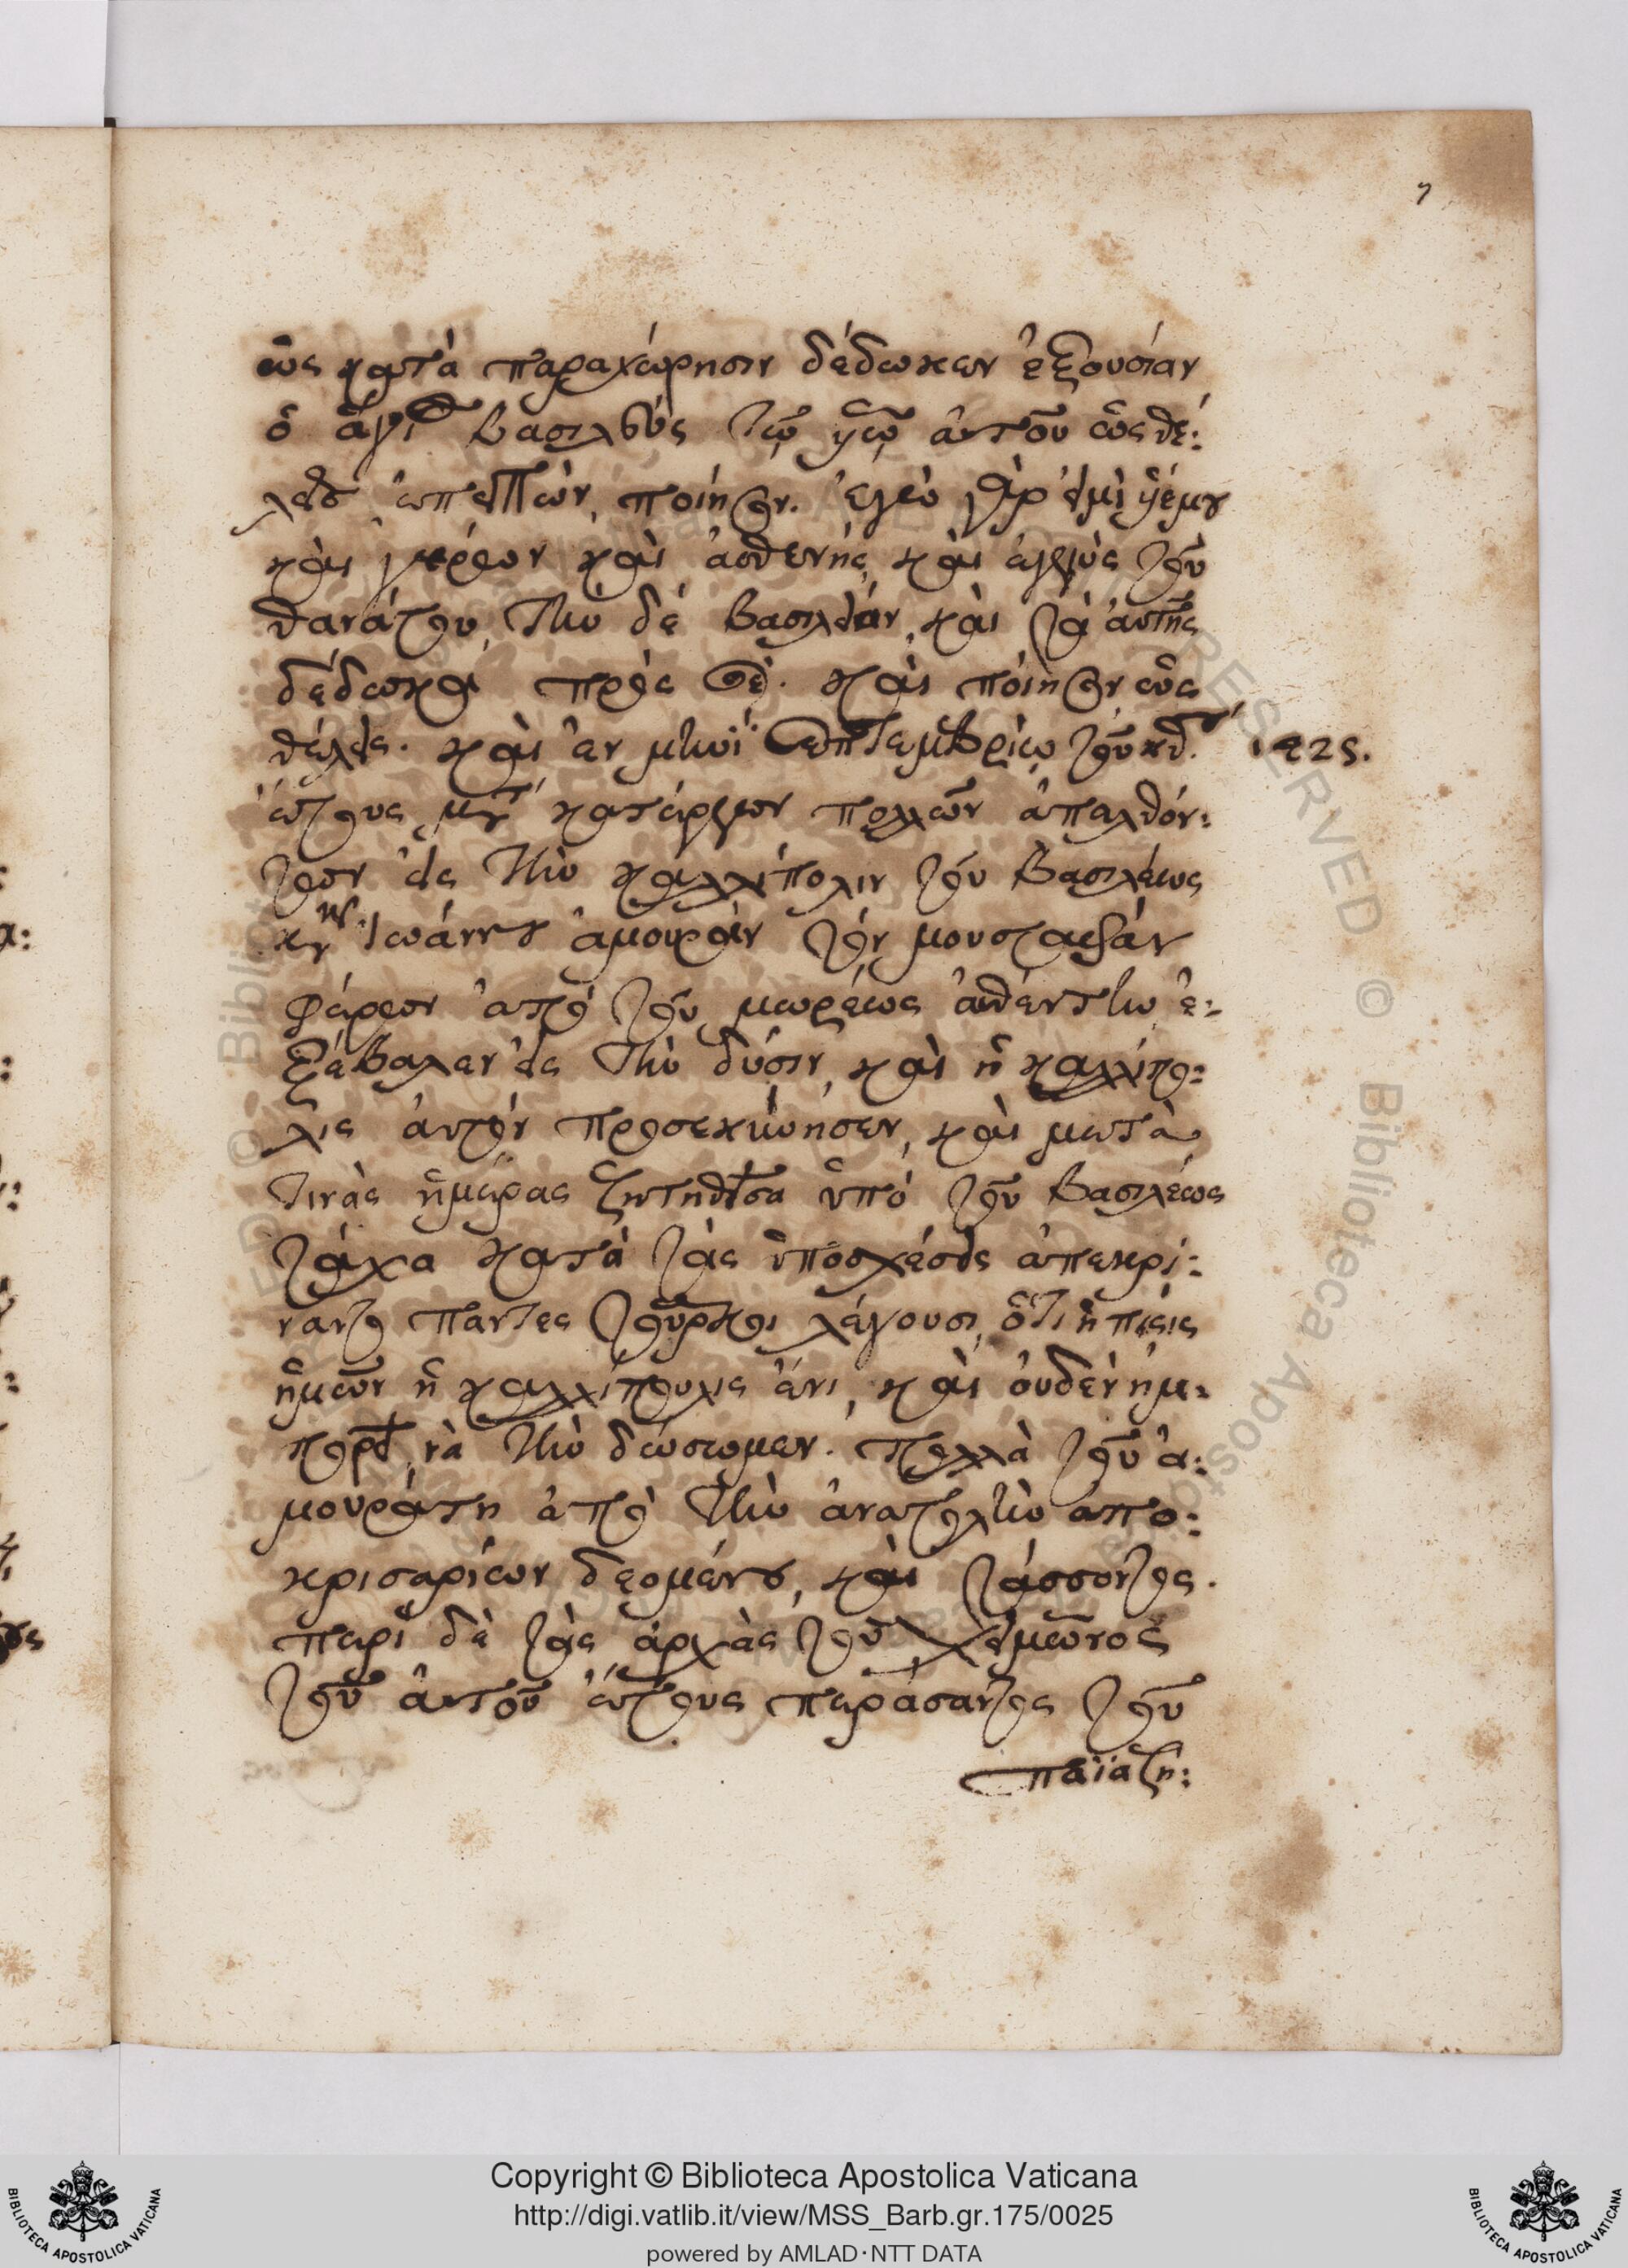 7
ὡς κατὰ παραχώρησιν δέδωκεν ἐξουσίαν
ὁ ἅγι βασιλεὺς τῷ ὑῷ αὐτοῦ ὡς θέ:
λει ποίησον. ἐγὼ γὰρ εἰμὶ
καὶ γέρων καὶ ἀσθενής, καὶ ἐγγὺς τοῦ
θανάτου, τὴν δὲ βασιλείαν, καὶ τὰ αὐτῆς
δέδωκα πρὸς σέ. καὶ ποίησον ὡς
θέλεις. καὶ ἐν μηνὶ Σεπτεμβρίῳ τοῦ
1425.
ἔτους, μετὰ κατέργων πολλῶν ἀπελθόν:
των εἰς τὴν καλλίπολιν τοῦ βασιλέως
κυρ Ἰωάννου ἀμουρὰν τὸν μουσταφᾶν
φέρων ἀπὸ τοῦ μωρέως αὐθέντην ἐ:
ξέβαλεν εἰς τὴν δύσιν, καὶ ἡ καλλίπο:
λις αὐτὸν προσεκύνησεν, καὶ μετὰ
τινὰς ἡμέρας ζητηθεῖσα ὑπὸ τοῦ βασιλέως
τάχα κατὰ τὰς ὑποσχέσεις ἀπεκρί:
ναντο παντες τοῦρκοι λέγουσι, ὅτι ἡ πίστις
ἡμῶν ἡ καλλίπουλις ἔνι, καὶ οὐδὲν ἠμ:
πορεῖ νὰ τὴν δώσωμεν. πολλὰ τοῦ ἀ:
μουράτη ἀπὸ τὴν ἀνατολὴν ἀπο:
κρισαρίων δεομένου, καὶ τάσσοντος.
περὶ δὲ τὰς ἀρχὰς τοῦ χειμῶνος
τοῦ αὐτοῦ ἔτους περάσαντος τοῦ
παϊαζη:
Copyright © Biblioteca Apostolica Vaticana
http://digi.vatlib.it/view/MSS_Barb.gr.175/0025
powered by AMLAD·NTT DATA